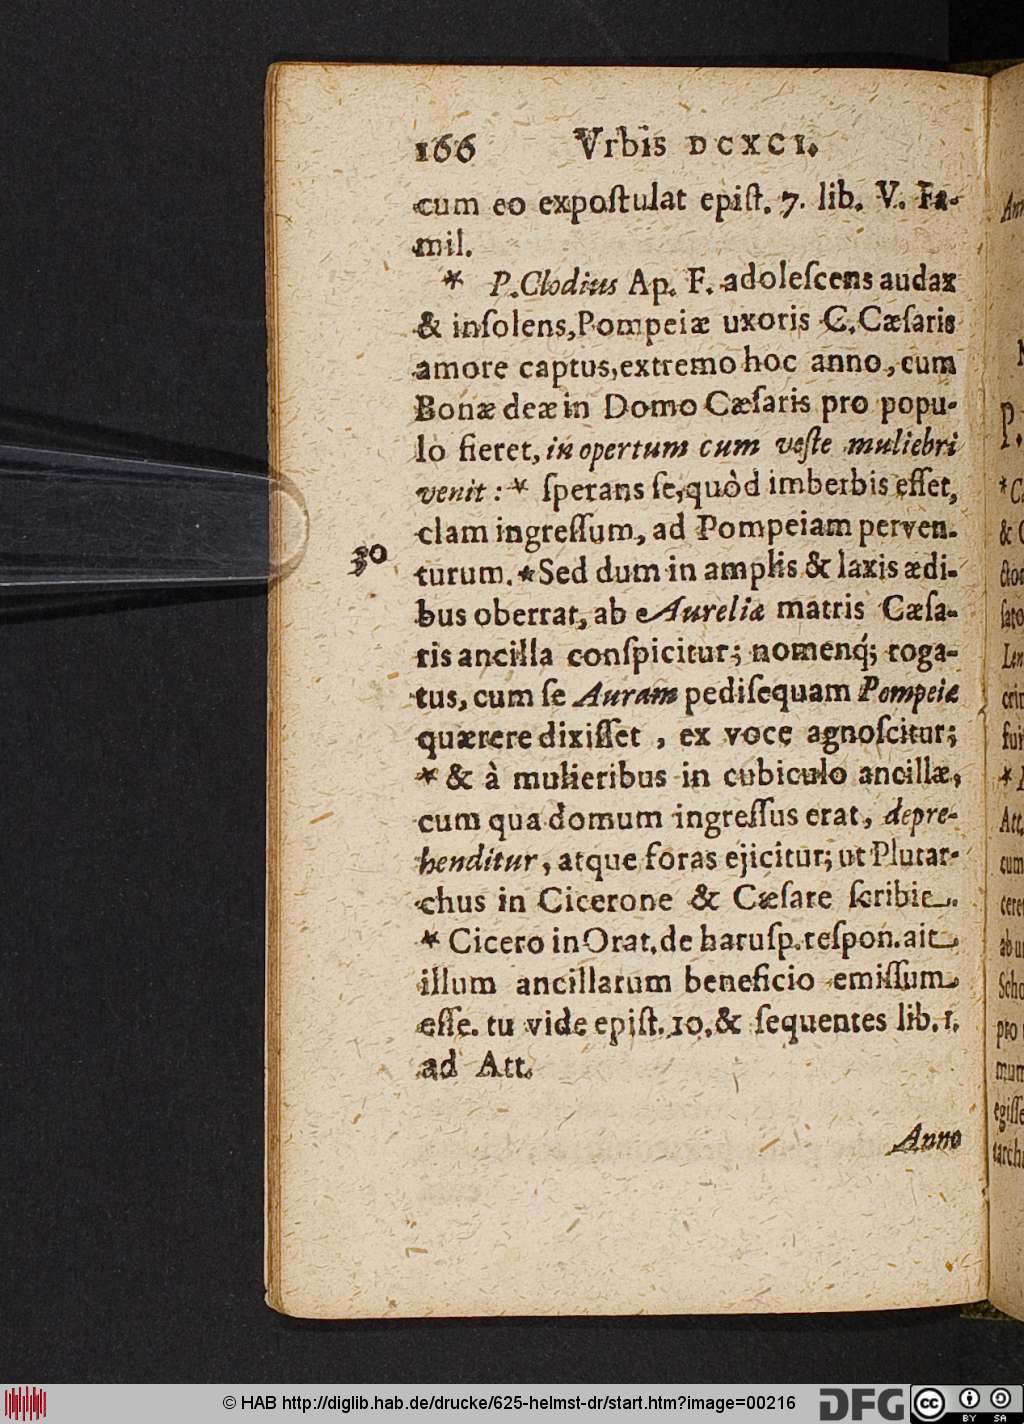 166 Vrbis DCXCI.
cum eo expoſtulat epiſt. 7. lib. V. Fa-
mil.
* P. Clodius Ap. F. adoleſcens audax
& inſolens, Pompeiæ uxoris C. Cæſaris
amore captus, extremo hoc anno, cum
Bonæ deæ in Domo Cæſaris pro popu-
lo fieret, in opertum cum veſte muliebri
venit: * ſperans ſe, quòd imberbis eſſet,
clam ingreſſum, ad Pompeiam perven-
30
turum. * Sed dum in amplis & laxis ædi-
bus oberrat, ab Aureliæ matris Cæſa-
ris ancilla conſpicitur; nomenq́; roga-
tus, cum ſe Auram pediſequam Pompeiæ
quærere dixiſſet, ex voce agnoſcitur;
* & à mulieribus in cubiculo ancillæ,
cum qua domum ingreſſus erat, depre-
henditur, atque foras ejicitur; ut Plutar-
chus in Cicerone & Cæſare ſcribit.
* Cicero in Orat. de haruſp. reſpon. ait,
illum ancillarum beneficio emiſſum
eſſe. tu vide epiſt. 10. & ſequentes lib. 1.
ad Att.
Anno
© HAB http://diglib.hab.de/drucke/625-helmst-dr/start.htm?image=00216
DFG
cc BY SA